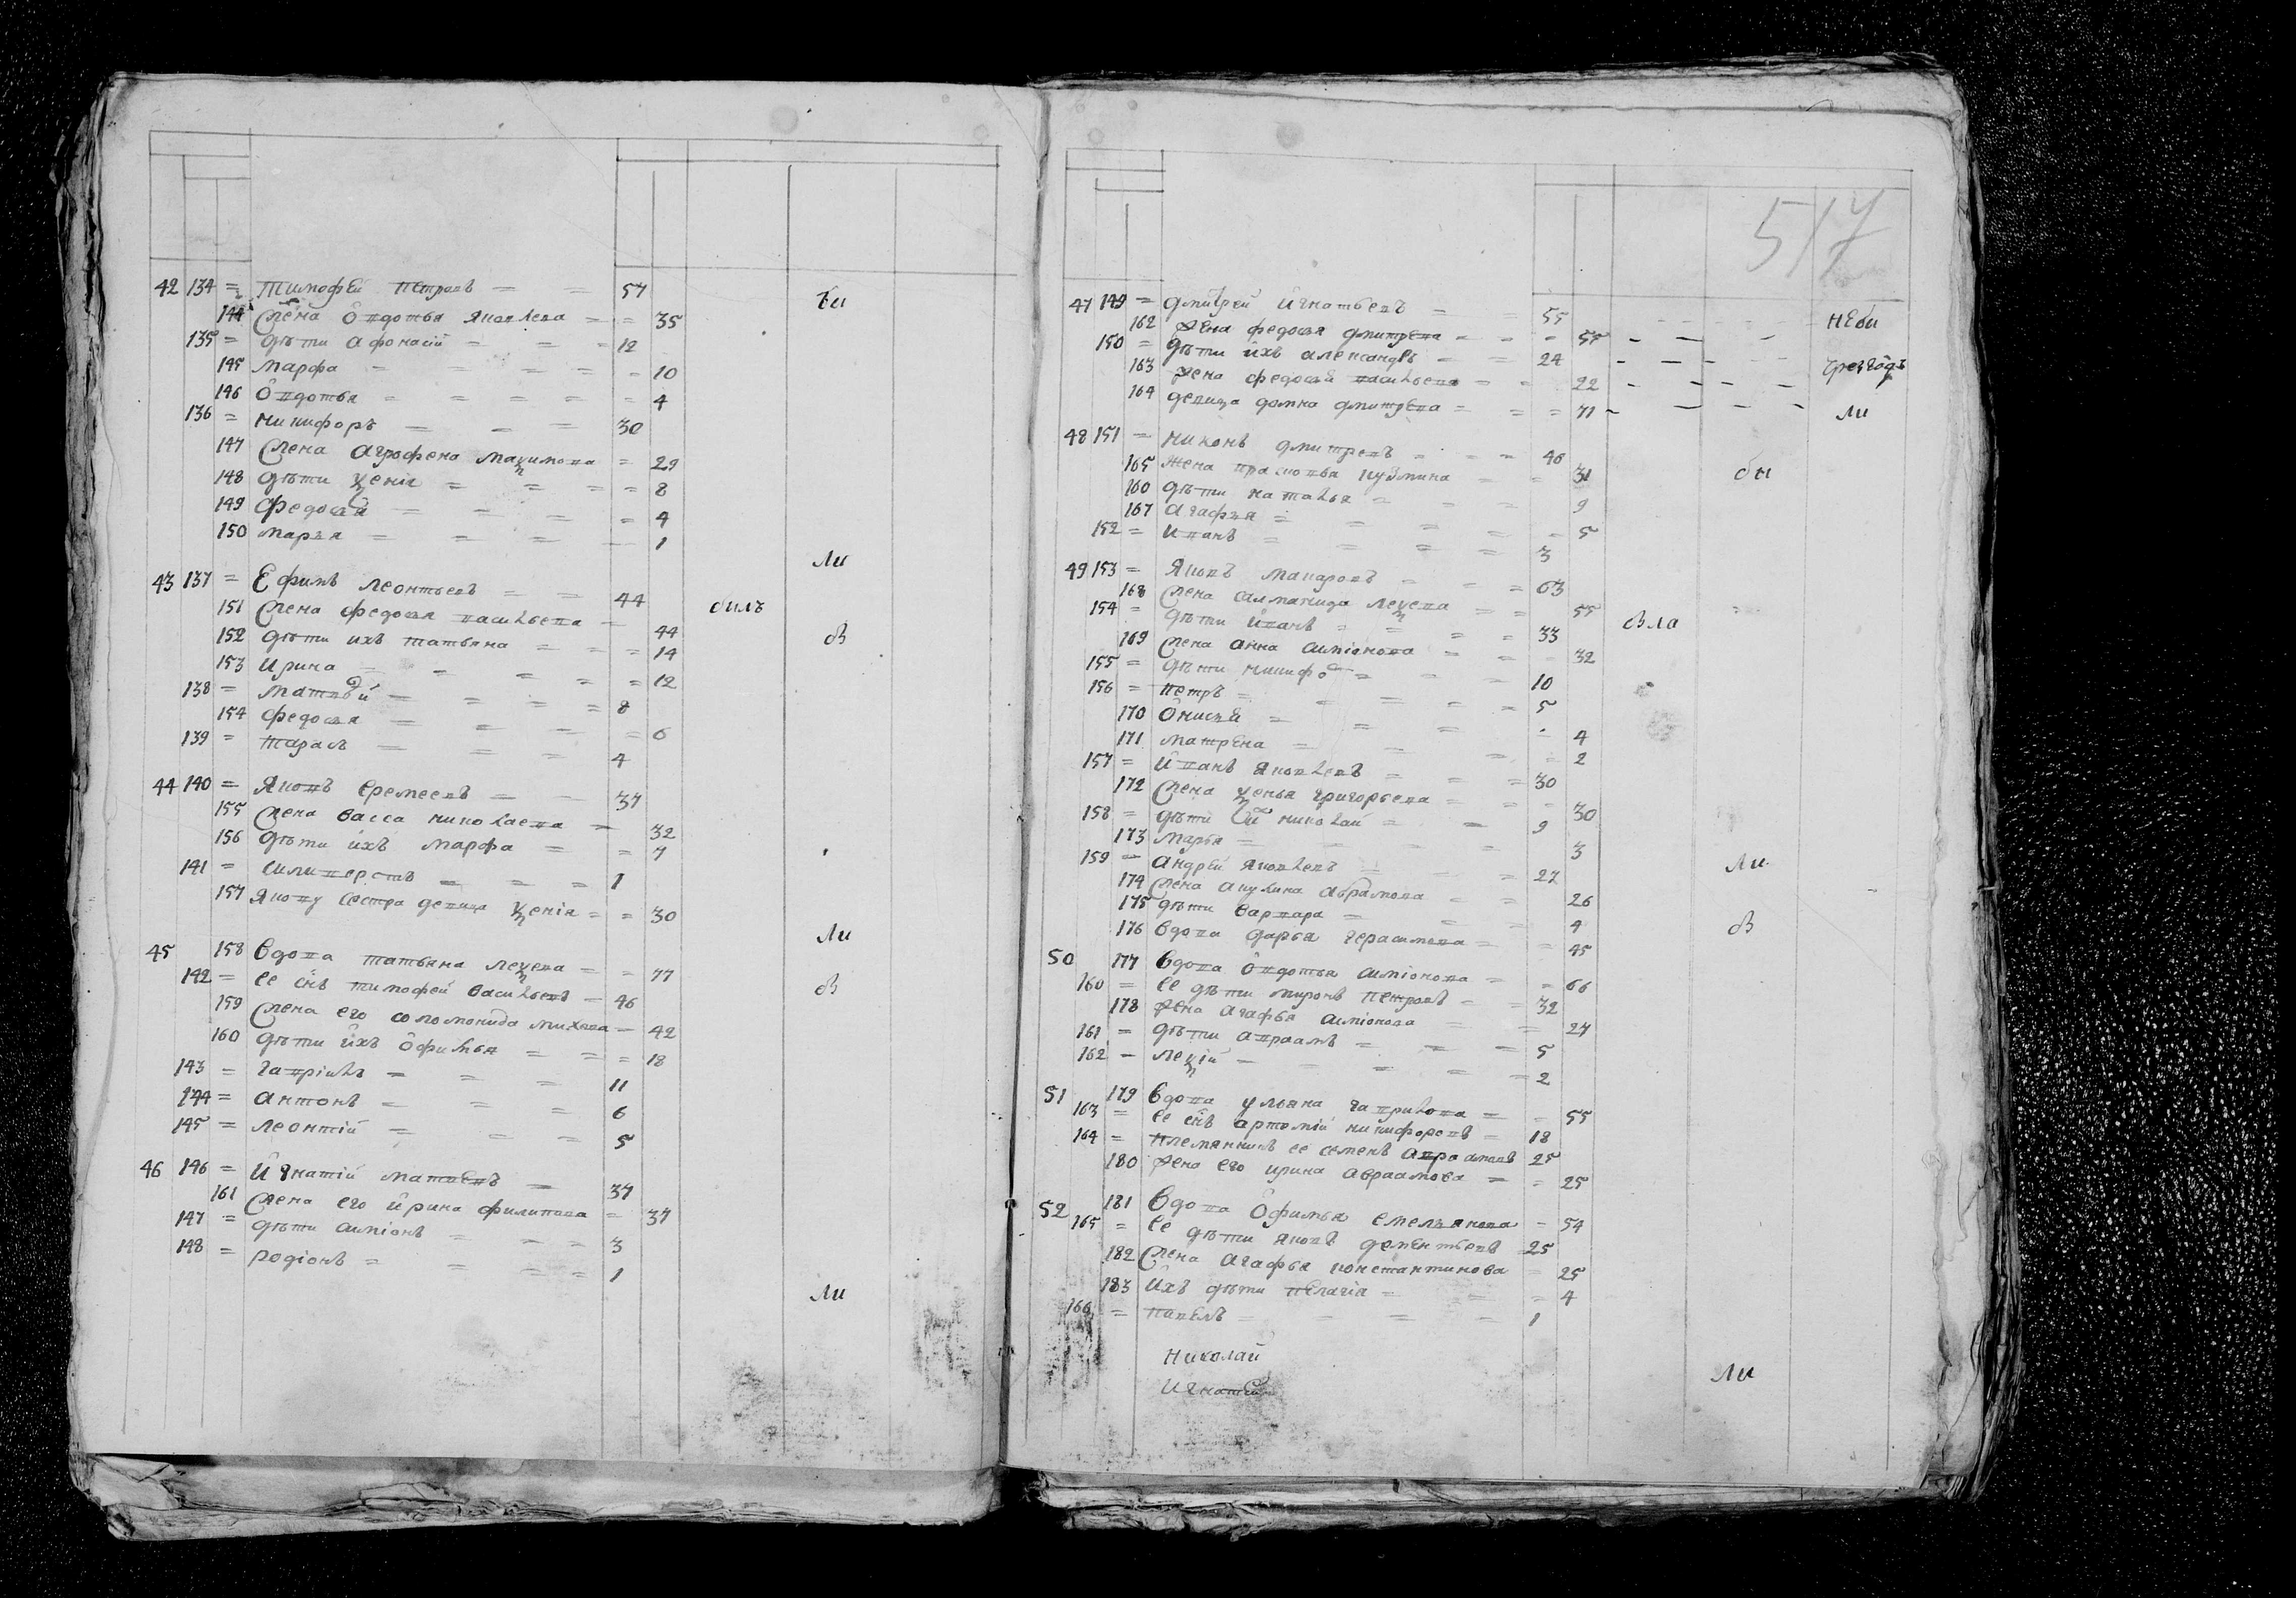 42 134 = Тимофей Петровъ = = 57 бы
144 жена Овдотья Яковлева = = 35
135 = дѣти Афонасій = = = 12
145 Марфа = = = = = 10
146 Овдотья = = = = = 4
136 = Никифоръ = = = 30
147 жена Агрофена Маѯимова = 29
148 дѣти Ѯенія = = = = 8
149 Федосья = = = = 4
150 Марья = = = = 1
ли
43 137 = Ефимъ Леонтьевъ = = 44 былъ
151 жена Федосья Васильева = 44
152 дѣти ихъ Татьяна = = = 14 в
153 Ирина = = = = = 12
138 = Матвѣй = = = = 8
154 Федосья = = = = 6
139 = Тарасъ = = = 4
44 140 = Яковъ Еремеевъ = = 37
155 жена Васса Николаева = 32
156 дѣти ихъ Марфа = = 7
141 = Силиверстъ = = = 1
157 Якову сестра девица Ѯенія = = 30
ли
45 158 вдова Татьяна Леѯева = = 77
142 = ее снъ Тимофей Васильевъ = 46 в
159 жена его Соломонида Михева = 42
160 дѣти ихъ Офимья = = = 18
143 = Гаврилъ = = = 11
144 = Антонъ = = = 6
145 = Леонтій = = = 5
46 146 = Игнатій Матвѣевъ = 37
161 жена его Ирина Филипова = 37
147 = дѣти Симіонъ = = = 3
148 = Родіонъ = = = = 1
ли
517
47 149 = Дмитрей Игнатьевъ = = 55 - - - - небы
162 жена Федосья Дмитрева = = = 55 - - -
150 = дѣти ихъ Александръ = = 24 - - - -
163 жена Федосья Васильева = = 22 - - - -
164 девица Домна Дмитрева = = = 71 - - - - ли
48 151 = Никонъ Дмитревъ = = = 46
165 жена Прасковья Кузмина = = 31 бы
160 дѣти Наталья = = = 9
167 Агафья = = = = = 5
152 = Иванъ = = = = = 3
49 153 = Яковъ Макаровъ = = = 63
168 жена Саламанида Леѯева = = 55 была
154 = дѣти Иванъ = = = = 33
169 жена Анна Симіонова = = = 32
155 = дѣти Никифо = = = 10
156 = Петръ = = = = = 5
170 Онисья = = = = = 4
171 Матрена = = = = 2
157 = Иванъ Яковлевъ = = = 30
172 жена Ѯенья Григорьева = = = 30
158 = дѣти Николай = = 9
173 Марья = = = = 3
159 = Андрей Яковлевъ = = = 27 ли
174 жена Акулина Абрамова = = 26
175 дѣти Варвара = = = 4
176 вдова Дарья Герасимова = = 45 в
50 177 вдова Овдотья Симіонова = = 66
160 = ее дѣти Миронъ Петровъ = = 32
178 жена Агафья Симіонова = = 27
161 = дѣти Авраамъ = = = 5
162 = Леѯій = = = = = 2
51 179 вдова Ульяна Гаврилова = = 55
163 = ее снъ Артемій Никифоровъ = 18
164 = племянникъ ее Семенъ Авраамовъ 25
180 жена его Ирина Авраамова = = 25
52 181 вдова Офимья Емельянова = 54
165 = ее дѣти Яковъ Дементьевъ 25
182 жена Агафья Константинова = 25
183 ихъ дѣти Пелагія = = = 4
166 = Павелъ = = = = 1
Николай
Игнатей
ли